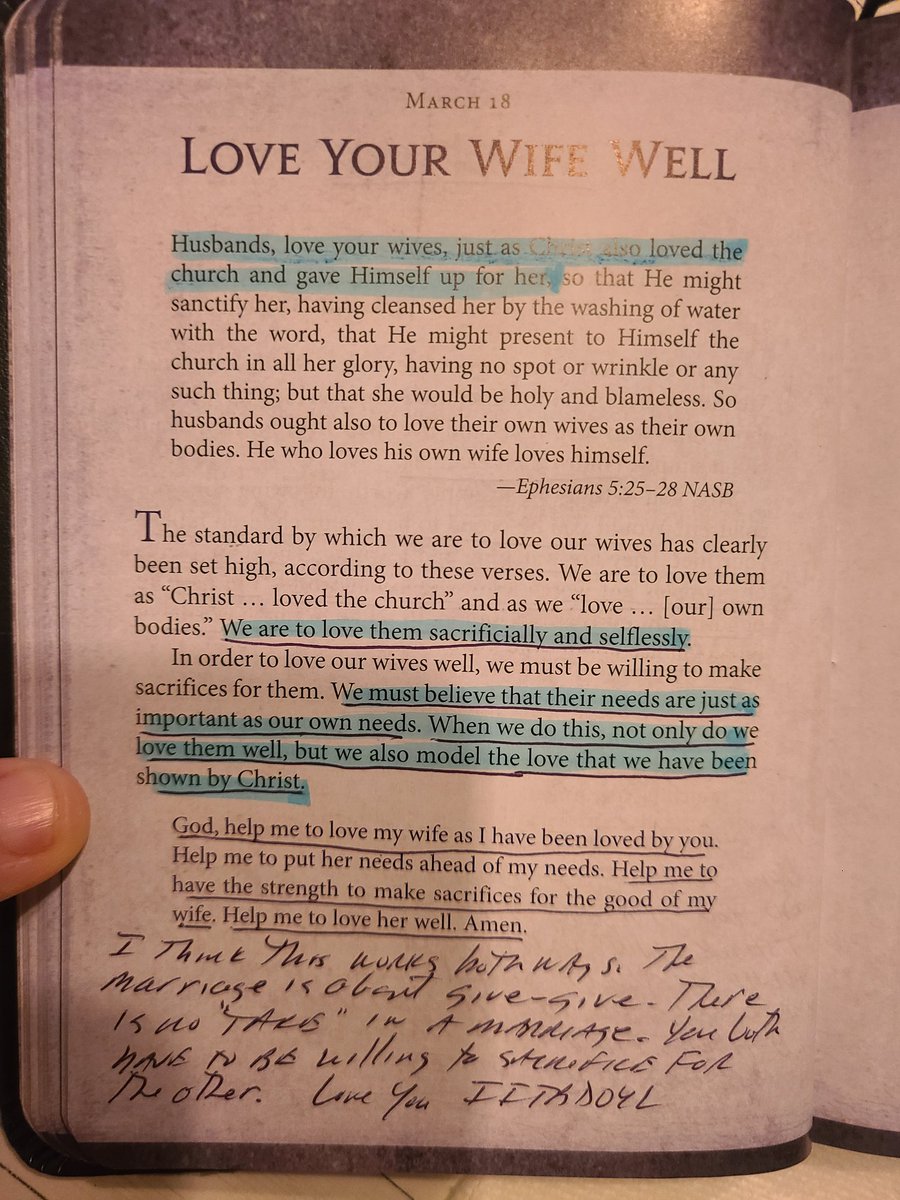 MARCH 18
LOVE YOUR WIFE WELL
Husbands, love your wives, just as Christ also loved the
church and gave Himself up for her, so that He might
sanctify her, having cleansed her by the washing of water
with the word, that He might present to Himself the
church in all her glory, having no spot or wrinkle or any
such thing; but that she would be holy and blameless. So
husbands ought also to love their own wives as their own
bodies. He who loves his own wife loves himself.
—Ephesians 5:25–28 NASB
The standard by which we are to love our wives has clearly
been set high, according to these verses. We are to love them
as “Christ … loved the church” and as we “love … [our] own
bodies.” We are to love them sacrificially and selflessly.
In order to love our wives well, we must be willing to make
sacrifices for them. We must believe that their needs are just as
important as our own needs. When we do this, not only do we
love them well, but we also model the love that we have been
shown by Christ.
God, help me to love my wife as I have been loved by you.
Help me to put her needs ahead of my needs. Help me to
have the strength to make sacrifices for the good of my
wife. Help me to love her well. Amen.
I Think This works both ways. The
marriage is about give-give. There
is no "TAKE" in A MARRIAGE. You both
HAVE TO BE willing to SACRIFICE FOR
The other. Love You IITADOYL